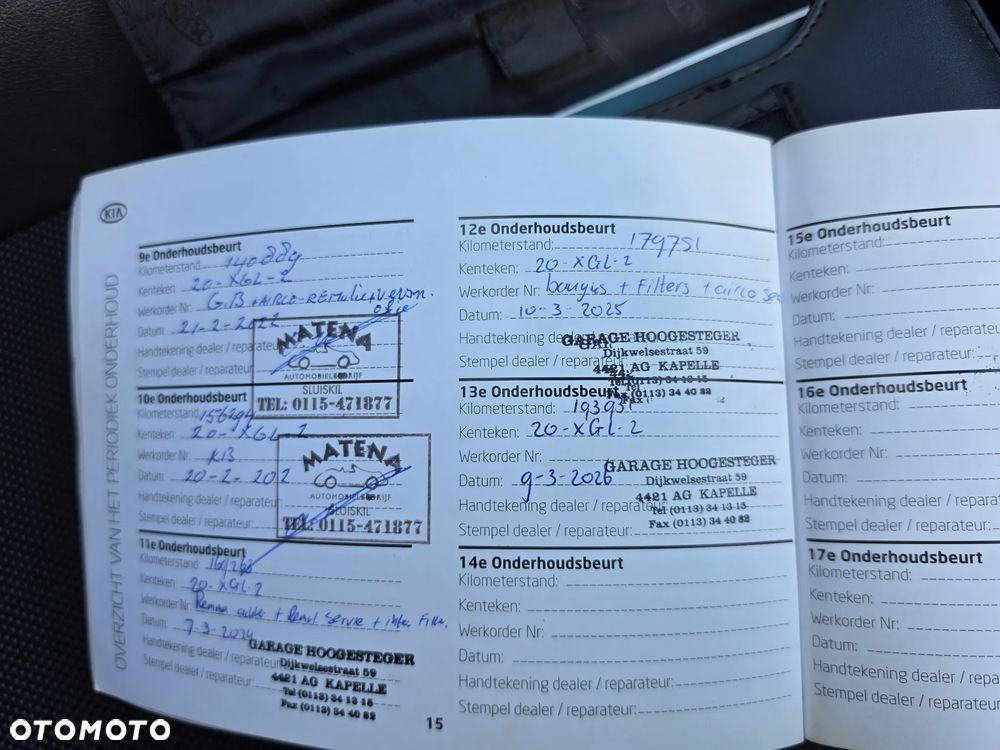 KIA
OVERZICHT VAN HET PERIODIEK ONDERHOUD
9e Onderhoudsbeurt
Kilometerstand: 140889
Kenteken: 20-XGL-2
Werkorder Nr: G.B + AIRCO-REMvloeistof
Datum: 21-2-2022
Handtekening dealer / reparateur:
Stempel dealer / reparateur:
MATENA
AUTOMOBIELBEDRIJF
SLUISKIL
TEL: 0115-471877
10e Onderhoudsbeurt
Kilometerstand: 156294
Kenteken: 20-XGL-2
Werkorder Nr: KB
Datum: 20-2-202
Handtekening dealer / reparateur:
Stempel dealer / reparateur:
MATENA
AUTOMOBIELBEDRIJF
SLUISKIL
TEL: 0115-471877
11e Onderhoudsbeurt
Kilometerstand:
Kenteken: 20-XGL-2
Werkorder Nr:
Datum: 7-3-2024
Handtekening dealer / reparateur:
Stempel dealer / reparateur:
GARAGE HOOGESTEGER
Dijkwelsestraat 59
4421 AG KAPELLE
Tel (0113) 34 13 15
Fax (0113) 34 40 82
15
12e Onderhoudsbeurt
Kilometerstand: 179751
Kenteken: 20-XGL-2
Werkorder Nr: bougies + Filters + airco
Datum: 10-3-2025
Handtekening dealer
Stempel dealer / reparateur:
GARAGE HOOGESTEGER
Dijkwelsestraat 59
4421 AG KAPELLE
Tel (0113) 34 13 15
Fax (0113) 34 40 82
13e Onderhoudsbeurt
Kilometerstand: 193951
Kenteken: 20-XGL-2
Werkorder Nr:
Datum: 9-3-2026
Handtekening dealer / reparateur:
Stempel dealer / reparateur:
GARAGE HOOGESTEGER
Dijkwelsestraat 59
4421 AG KAPELLE
Tel (0113) 34 13 15
Fax (0113) 34 40 82
14e Onderhoudsbeurt
Kilometerstand:
Kenteken:
Werkorder Nr:
Datum:
Handtekening dealer / reparateur:
Stempel dealer / reparateur:
15e Onderhoudsbeurt
Kilometerstand:
Kenteken:
Werkorder Nr:
Datum:
Handtekening dealer / reparateur
Stempel dealer / reparateur:
16e Onderhoudsbeurt
Kilometerstand:
Kenteken:
Werkorder Nr:
Datum:
Handtekening dealer / reparate
Stempel dealer / reparateur:
17e Onderhoudsbeurt
Kilometerstand:
Kenteken:
Werkorder Nr:
Datum:
Handtekening dealer / repara
Stempel dealer / reparateur:
OTOMOTO